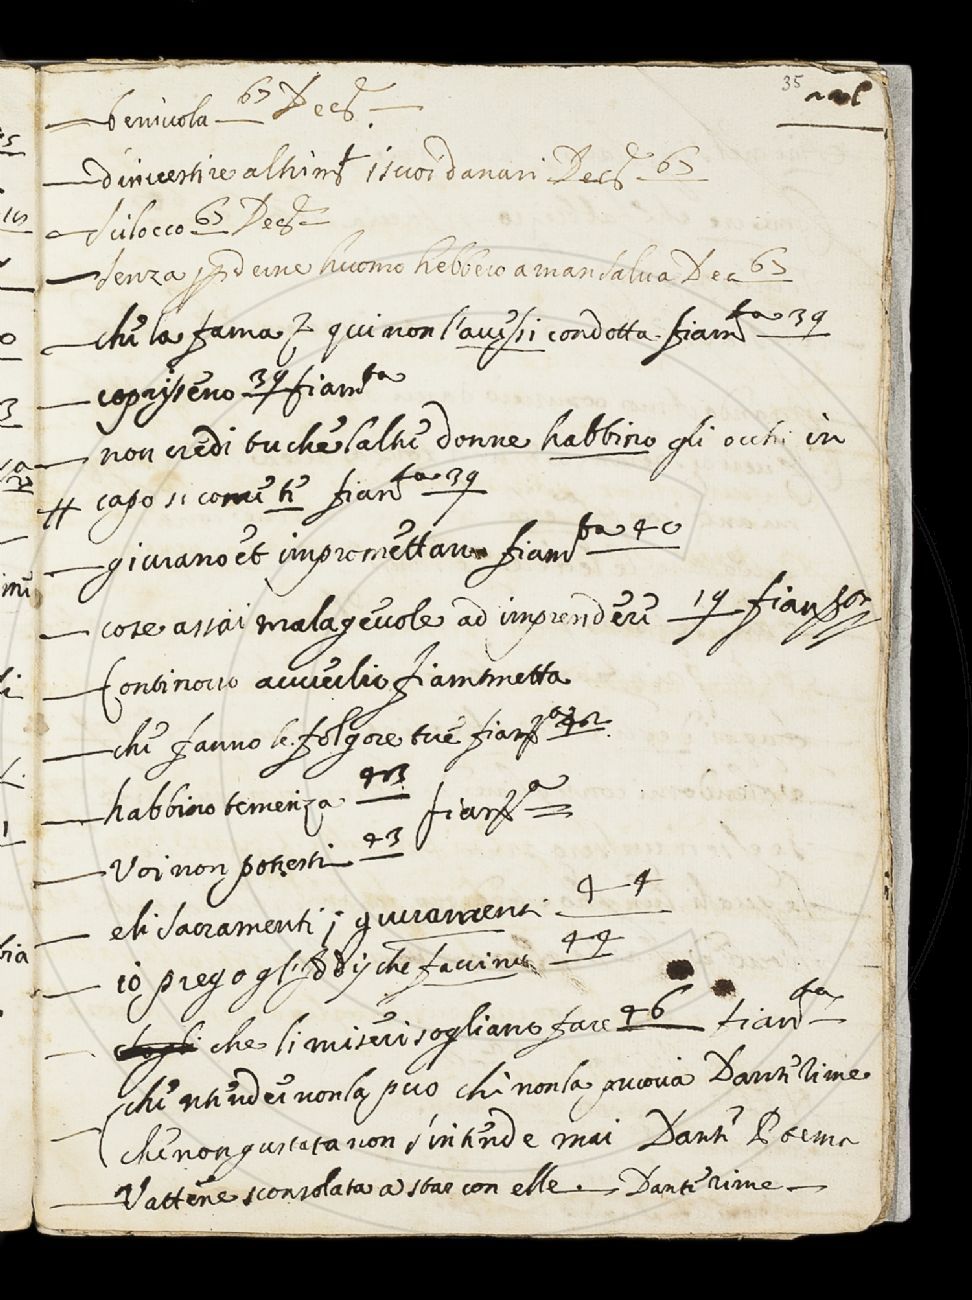 35
benivola 67 Dec.
d'investire altrim.ti i suoi danari Dec. 67
scilocco 67 Dec.
senza perderne huomo hebbero a mansalva Dec. 67
che la fama è qui non l'avessi condotta fiam.ta 39
copriseno 39 fiam.ta
non credi tu che l'altre donne habbino gli occhi in
capo si come te fiam.ta 39
giurano et imprometton fiam.ta 40
cose assai malagevole ad imprendere 19 fiam
Continovo avvenne fiammetta
che fanno le folgore tue fiam.ta 42
habbino temenza 43 fiam.ta
Voi non potresti 43
e li sacramenti i giuramenti 44
io prego gl'Iddij che faccino 44
che li miseri sogliano fare 46 fiam.ta
che ntender non la può chi non la pruova Dante rime
che non gustata non s'intende mai Dante Poema
Vattene sconsolata a star con elle. Dante rime